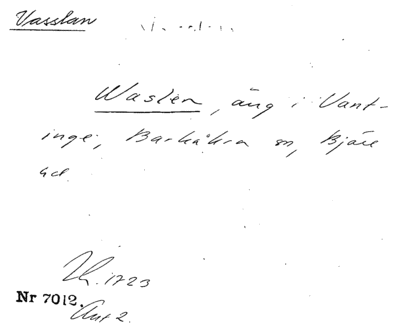 Vasslan
Waslen, äng i Vant-
inge, Barkåkra sn, Bjäre
hd.
1723
Nr 7012.
Akt 2.